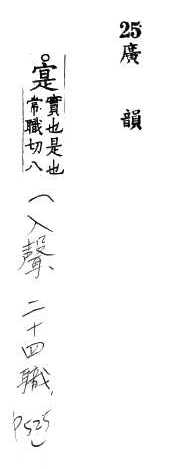 25 廣韻
寔
實也是也
常職切八
(入聲、二十四職, P525)